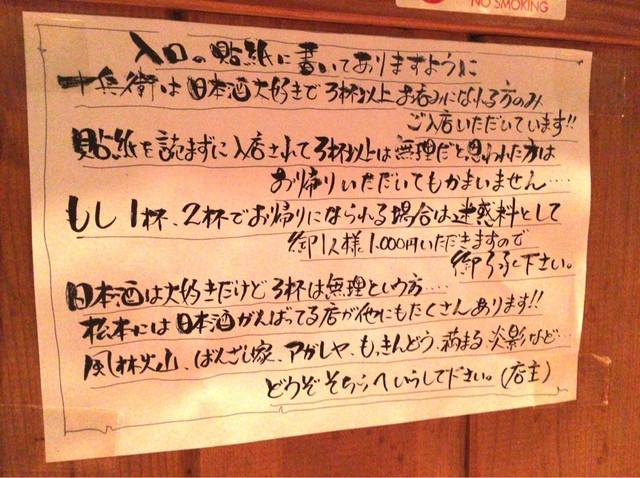 NO SMOKING
入口の貼紙に書いてありますように
十兵衛は日本酒大好きで3杯以上お呑みになれる方のみ
ご入店いただいています!!
貼紙を読まずに入店されて3杯以上は無理だと思われた方は
お帰りいただいてもかまいません……
もし1杯、2杯でお帰りになられる場合は迷惑料として
御1人様1.000円いただきますので
御了承下さい。
日本酒は大好きだけど3杯は無理という方……
松本には日本酒がんばってる店が他にもたくさんあります!!
風林火山、ばんざい家、アガレヤ、もっきんどう、満まる、炎影など…
どうぞそちらへいらして下さい。(店主)